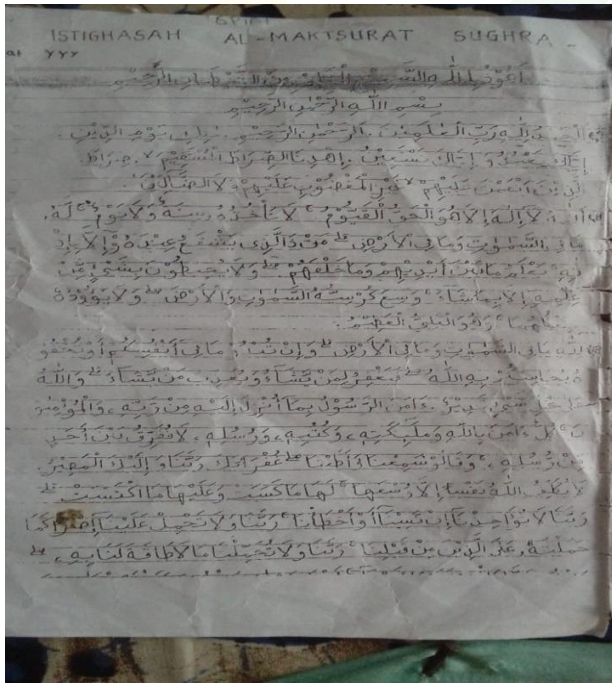 ISTIGHASAH AL-MAKTSURAT SUGHRA
بِسْمِ اللهِ الرَّحْمٰنِ الرَّحِيْمِ
رَبِّ الْعٰلَمِيْنَ . اَلرَّحْمٰنِ الرَّحِيْمِ . مٰلِكِ يَوْمِ الدِّيْنِ .
إِيَّاكَ نَعْبُدُ وَإِيَّاكَ نَسْتَعِيْنُ . اِهْدِنَا الصِّرَاطَ الْمُسْتَقِيْمَ . صِرَاطَ
الَّذِيْنَ أَنْعَمْتَ عَلَيْهِمْ غَيْرِ الْمَغْضُوْبِ عَلَيْهِمْ وَلَا الضَّآلِّيْنَ .
لَآ إِلٰهَ إِلَّا هُوَ الْحَيُّ الْقَيُّوْمُ لَا تَأْخُذُهُ سِنَةٌ وَلَا نَوْمٌ لَهُ
مَا فِي السَّمٰوٰتِ وَمَا فِي الْأَرْضِ مَنْ ذَا الَّذِيْ يَشْفَعُ عِنْدَهُ إِلَّا بِإِذْ
نِهِ يَعْلَمُ مَا بَيْنَ أَيْدِيْهِمْ وَمَا خَلْفَهُمْ وَلَا يُحِيْطُوْنَ بِشَيْءٍ مِّنْ
عِلْمِهِ إِلَّا بِمَا شَاءَ وَسِعَ كُرْسِيُّهُ السَّمٰوٰتِ وَالْأَرْضَ وَلَا يَؤُوْدُهُ
حِفْظُهُمَا وَهُوَ الْعَلِيُّ الْعَظِيْمُ .
لِلّٰهِ مَا فِي السَّمٰوٰتِ وَمَا فِي الْأَرْضِ وَإِنْ تُبْدُوْا مَا فِيْ أَنْفُسِكُمْ أَوْ تُخْفُوْ
هُ يُحَاسِبْكُمْ بِهِ اللهُ فَيَغْفِرُ لِمَنْ يَّشَاءُ وَيُعَذِّبُ مَنْ يَّشَاءُ وَاللهُ
شَيْءٍ قَدِيْرٌ . ءَامَنَ الرَّسُوْلُ بِمَا أُنْزِلَ إِلَيْهِ مِنْ رَّبِّهِ وَالْمُؤْمِنُوْ
نَ كُلٌّ ءَامَنَ بِاللهِ وَمَلٰٓئِكَتِهِ وَكُتُبِهِ وَرُسُلِهِ لَا نُفَرِّقُ بَيْنَ أَحَدٍ
مِّنْ رُّسُلِهِ وَقَالُوْا سَمِعْنَا وَأَطَعْنَا غُفْرَانَكَ رَبَّنَا وَإِلَيْكَ الْمَصِيْرُ .
لَا يُكَلِّفُ اللهُ نَفْسًا إِلَّا وُسْعَهَا لَهَا مَا كَسَبَتْ وَعَلَيْهَا مَا اكْتَسَبَتْ
رَبَّنَا لَا تُؤَاخِذْنَا إِنْ نَّسِيْنَا أَوْ أَخْطَأْنَا رَبَّنَا وَلَا تَحْمِلْ عَلَيْنَا إِصْرًا كَمَا
حَمَلْتَهُ عَلَى الَّذِيْنَ مِنْ قَبْلِنَا رَبَّنَا وَلَا تُحَمِّلْنَا مَا لَا طَاقَةَ لَنَا بِهِ